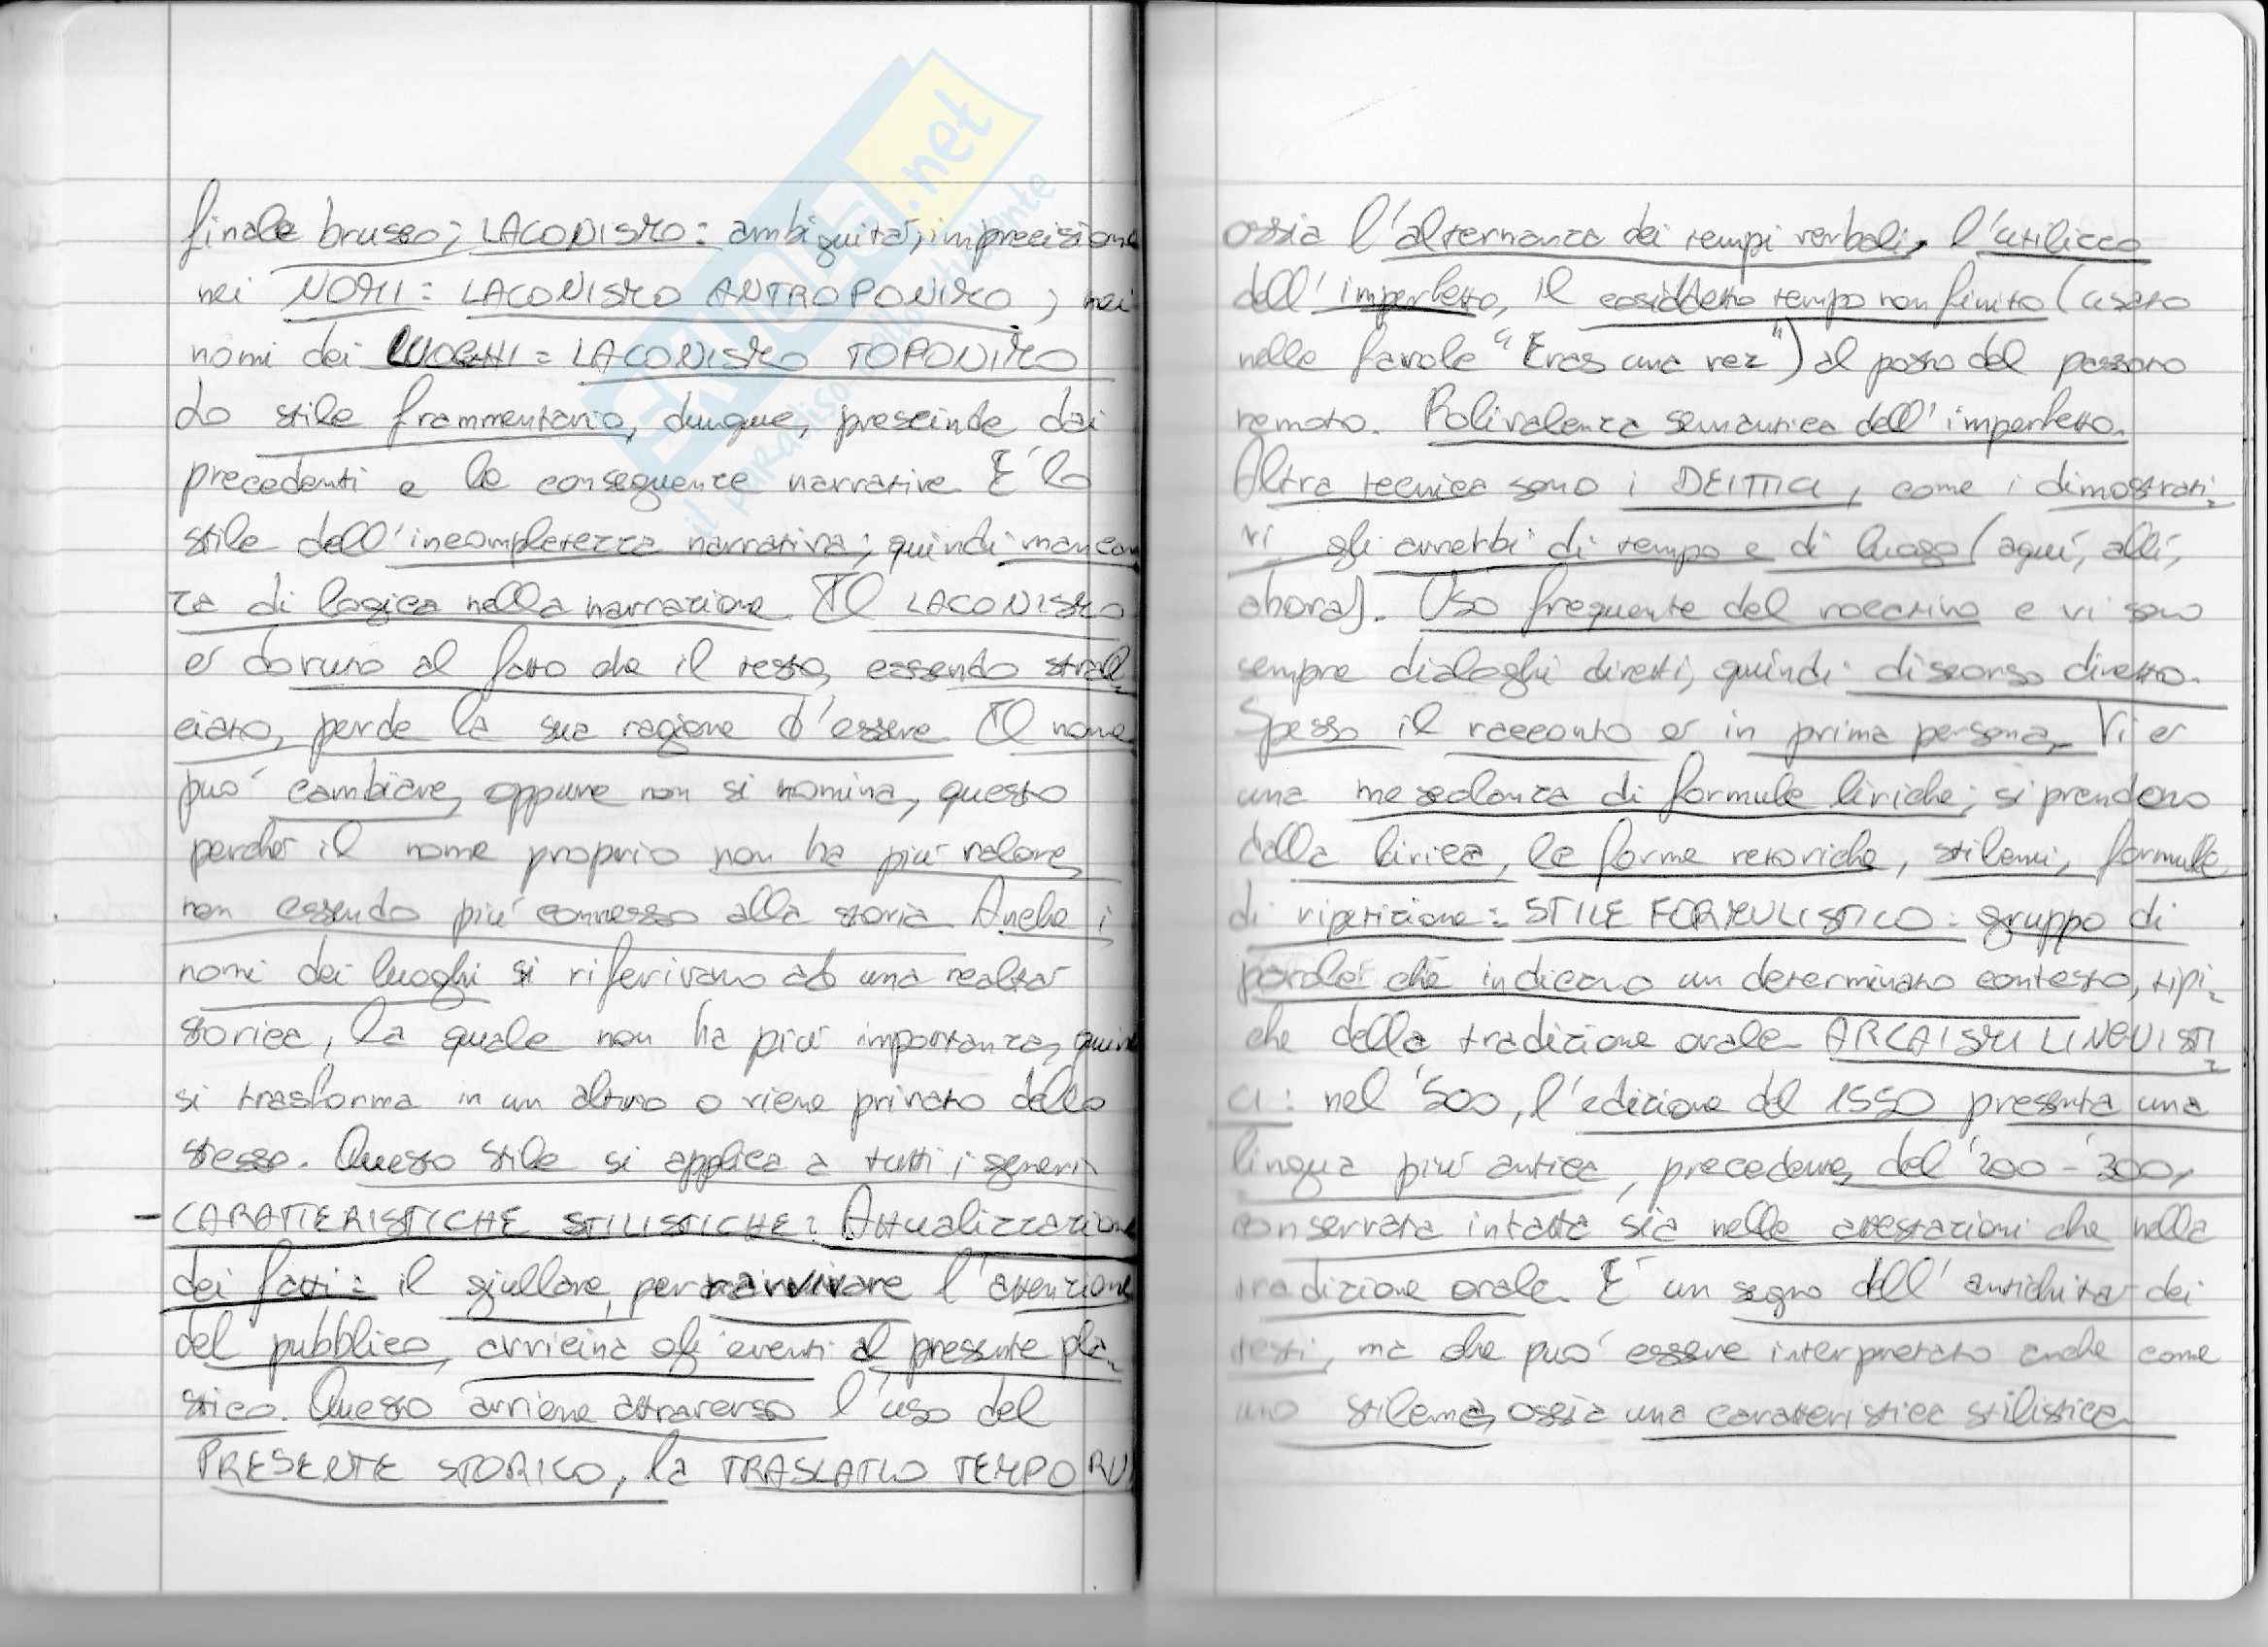 finale brusco; LACONISMO: ambiguità, imprecisione
nei NOMI: LACONISMO ANTROPONIMO; nei
nomi dei LUOGHI = LACONISMO TOPONIMO
Lo stile frammentario, dunque, prescinde dai
precedenti e le conseguenze narrative. È lo
stile dell'incompletezza narrativa; quindi mancan
za di logica nella narrazione. Il LACONISMO
è dovuto al fatto che il testo, essendo stral-
ciato, perde la sua ragione d'essere. Il nome
può cambiare, oppure non si nomina, questo
perché il nome proprio non ha più valore,
non essendo più connesso alla storia. Anche i
nomi dei luoghi si riferivano ad una realtà
storica, la quale non ha più importanza, quindi
si trasforma in un altro o viene privato dello
stesso. Questo stile si applica a tutti i generi.
- CARATTERISTICHE STILISTICHE: Attualizzazione
dei fatti: il giullare, per ravvivare l'attenzione
del pubblico, avvicina gli eventi al presente pla-
stico. Questo avviene attraverso l'uso del
PRESENTE STORICO, la TRASLATIO TEMPORU
ossia l'alternanza dei tempi verbali, l'utilizzo
dell'imperfetto, il cosiddetto tempo non finito (usato
nelle favole "Eras una vez") al posto del passato
remoto. Polivalenza semantica dell'imperfetto.
Altra tecnica sono i DEITTICI, come i dimostrati-
vi gli avverbi di tempo e di luogo (aquí, allí,
ahora). Uso frequente del vocativo e vi sono
sempre dialoghi diretti, quindi: discorso diretto.
Spesso il racconto è in prima persona. Vi è
una mescolanza di formule liriche; si prendono
dalla lirica, le forme retoriche, stilemi, formule
di ripetizione: STILE FORMULISTICO: gruppo di
parole che indicano un determinato contesto, tipi-
che della tradizione orale. ARCAISMI LINGUISTI-
CI: nel '500, l'edizione del 1550 presenta una
lingua più antica, precedente, del '200 - '300,
conservata intatta sia nelle attestazioni che nella
tradizione orale. È un segno dell'antichità dei
testi, ma che può essere interpretato anche come
uno stilema, ossia una caratteristica stilistica.
.net
il paradiso dello studente